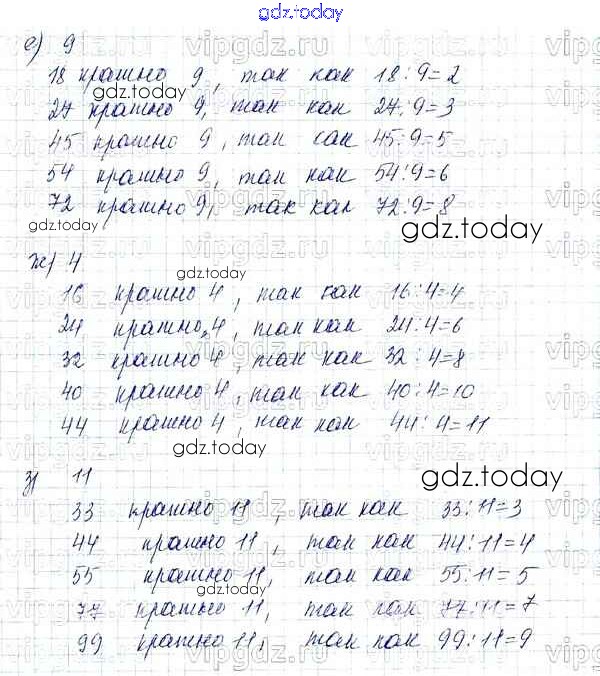 gdz.today
е) 9
18 кратно 9, так как 18:9=2
27 кратно 9, так как 27:9=3
45 кратно 9, так как 45:9=5
54 кратно 9, так как 54:9=6
72 кратно 9, так как 72:9=8
ж) 4
16 кратно 4, так как 16:4=4
24 кратно 4, так как 24:4=6
32 кратно 4, так как 32:4=8
40 кратно 4, так как 40:4=10
44 кратно 4, так как 44:4=11
з) 11
33 кратно 11, так как 33:11=3
44 кратно 11, так как 44:11=4
55 кратно 11, так как 55:11=5
77 кратно 11, так как 77:11=7
99 кратно 11, так как 99:11=9